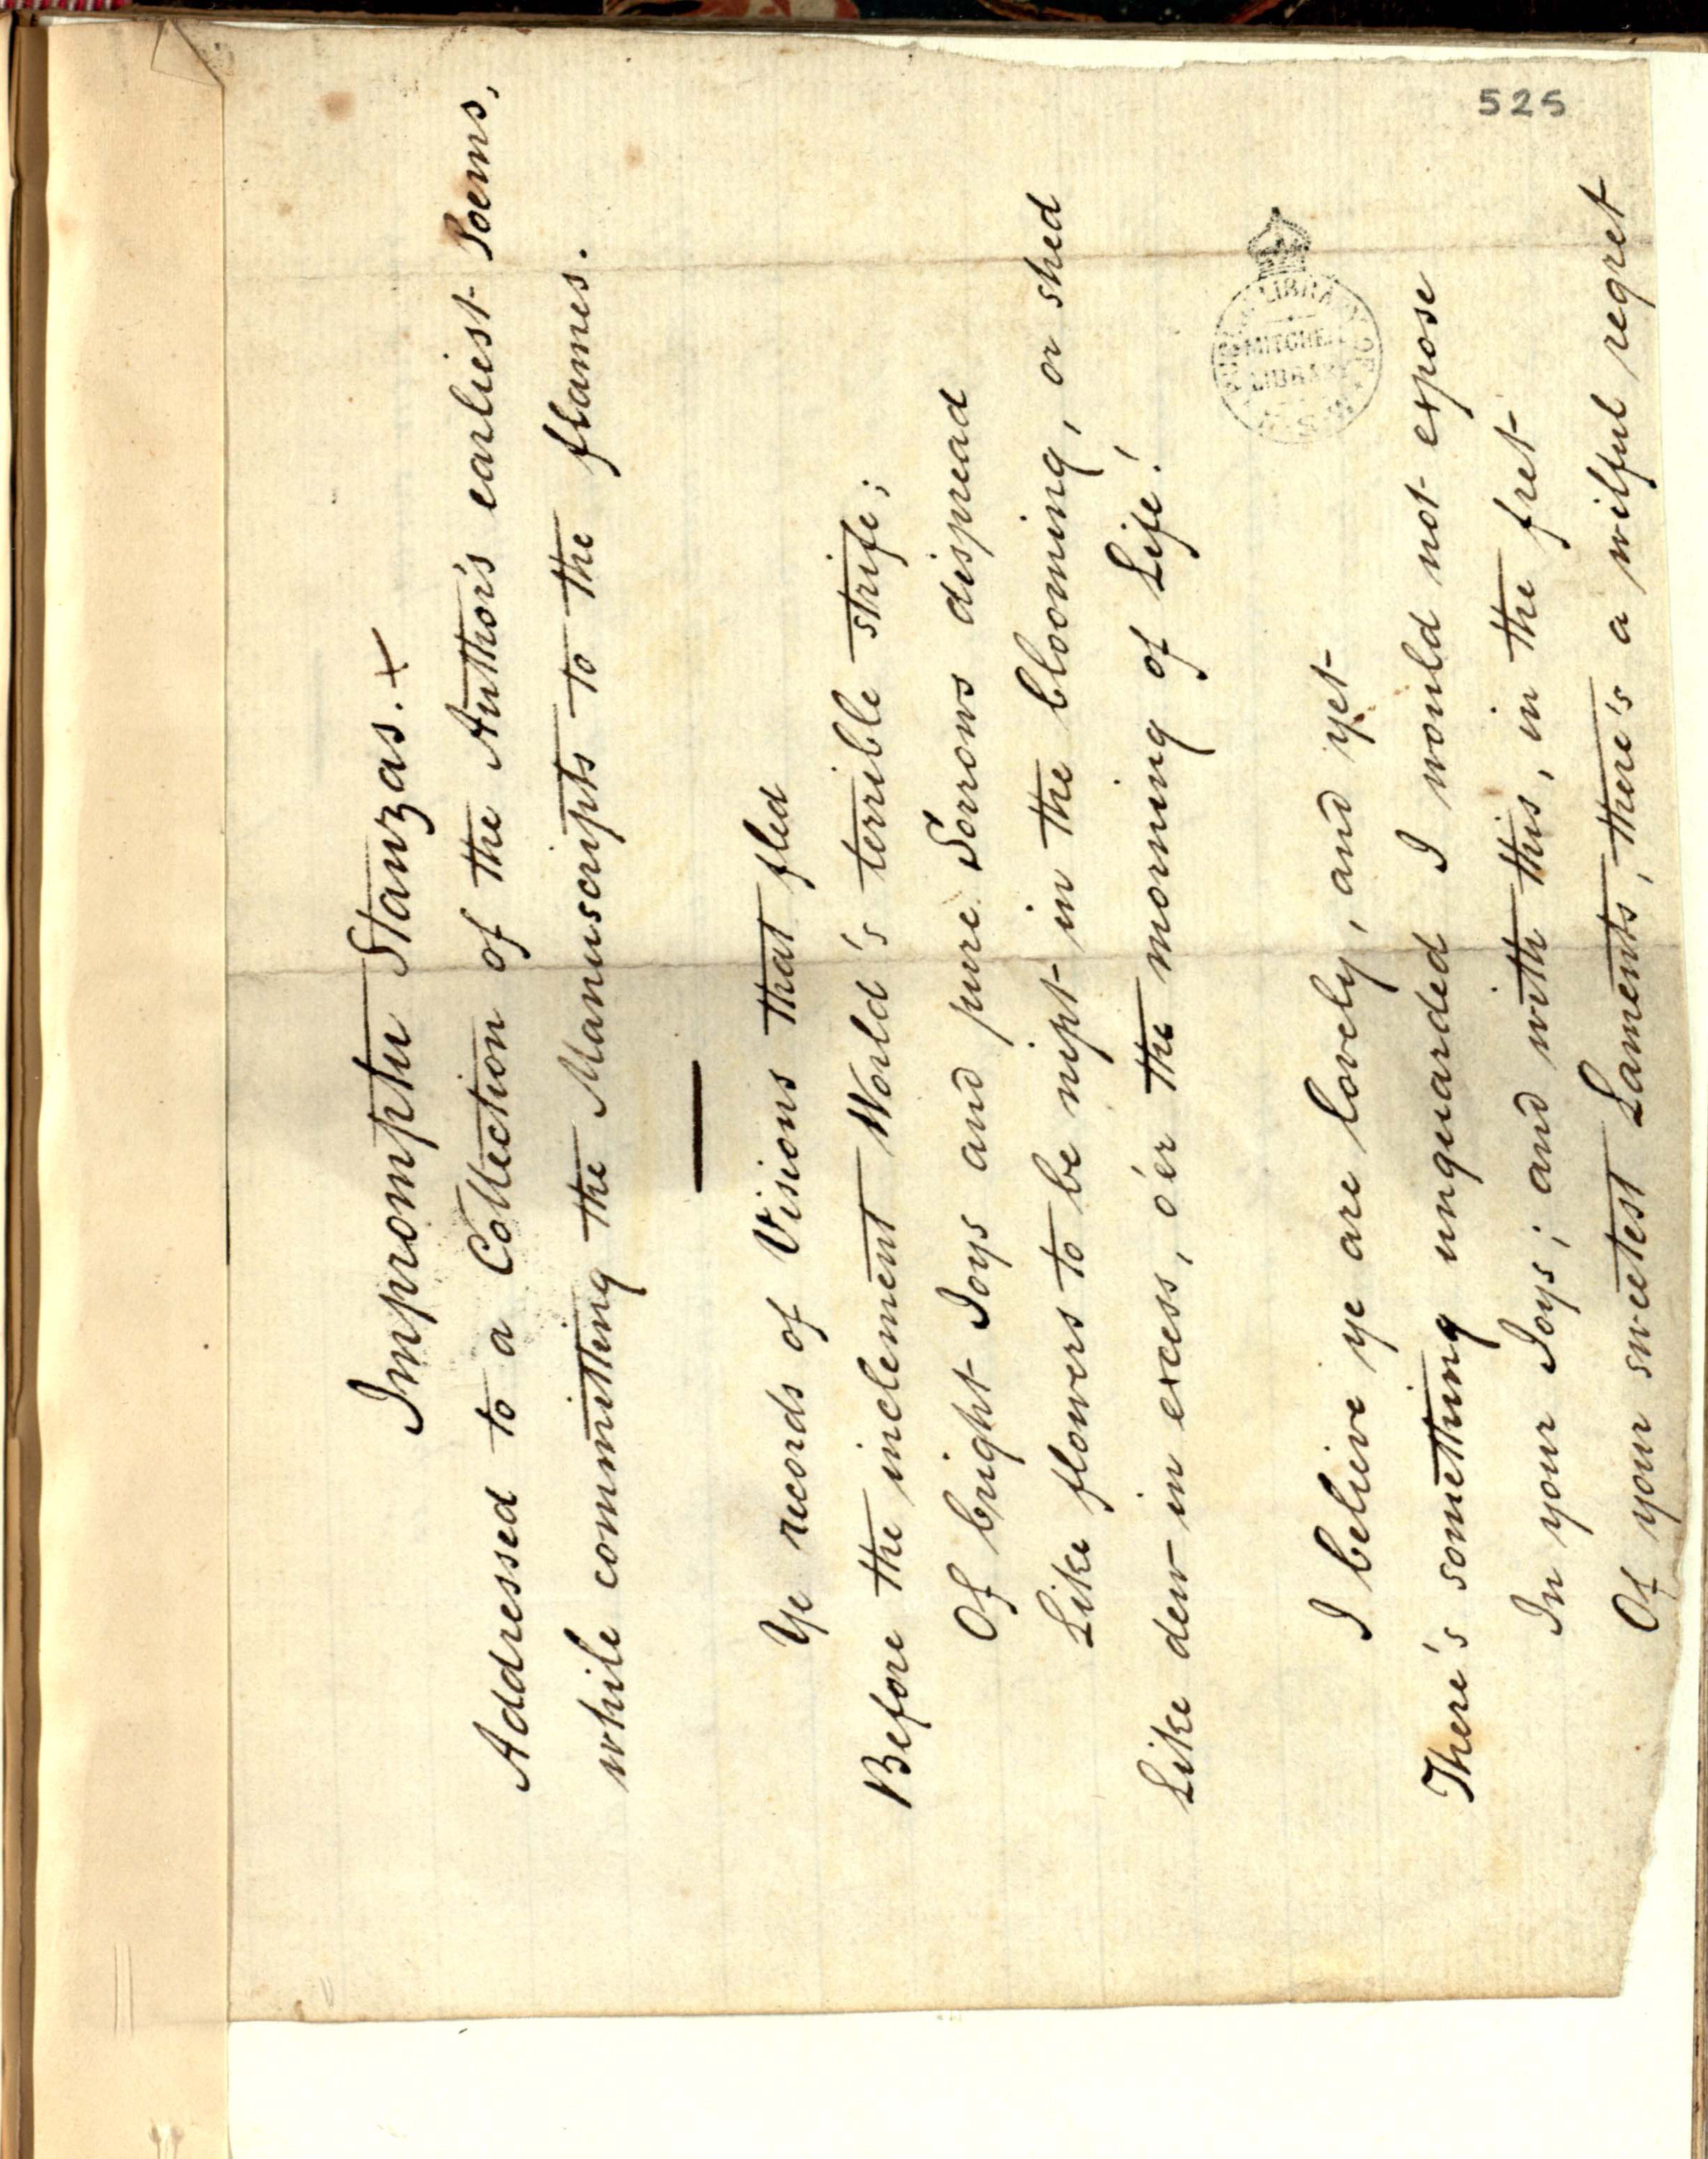 525
Impromptu Stanzas. +
Addressed to a Collection of the Author's earliest Poems,
while committing the Manuscripts to the flames.
Ye records of Visions that fled
Before the inclement World's terrible strife;
Of bright Joys and pure Sorrows dispread
Like flowers to be nipt in the blooming, or shed
Like dew in excess, o'er the morning of Life!
PUBLIC LIBRARY OF N.S.W.
MITCHELL
LIBRARY
I believe ye are lovely, and yet
There's something unguarded I would not expose
In your Joys; and with this, in the fret
Of your sweetest Laments, there's a wilful regret